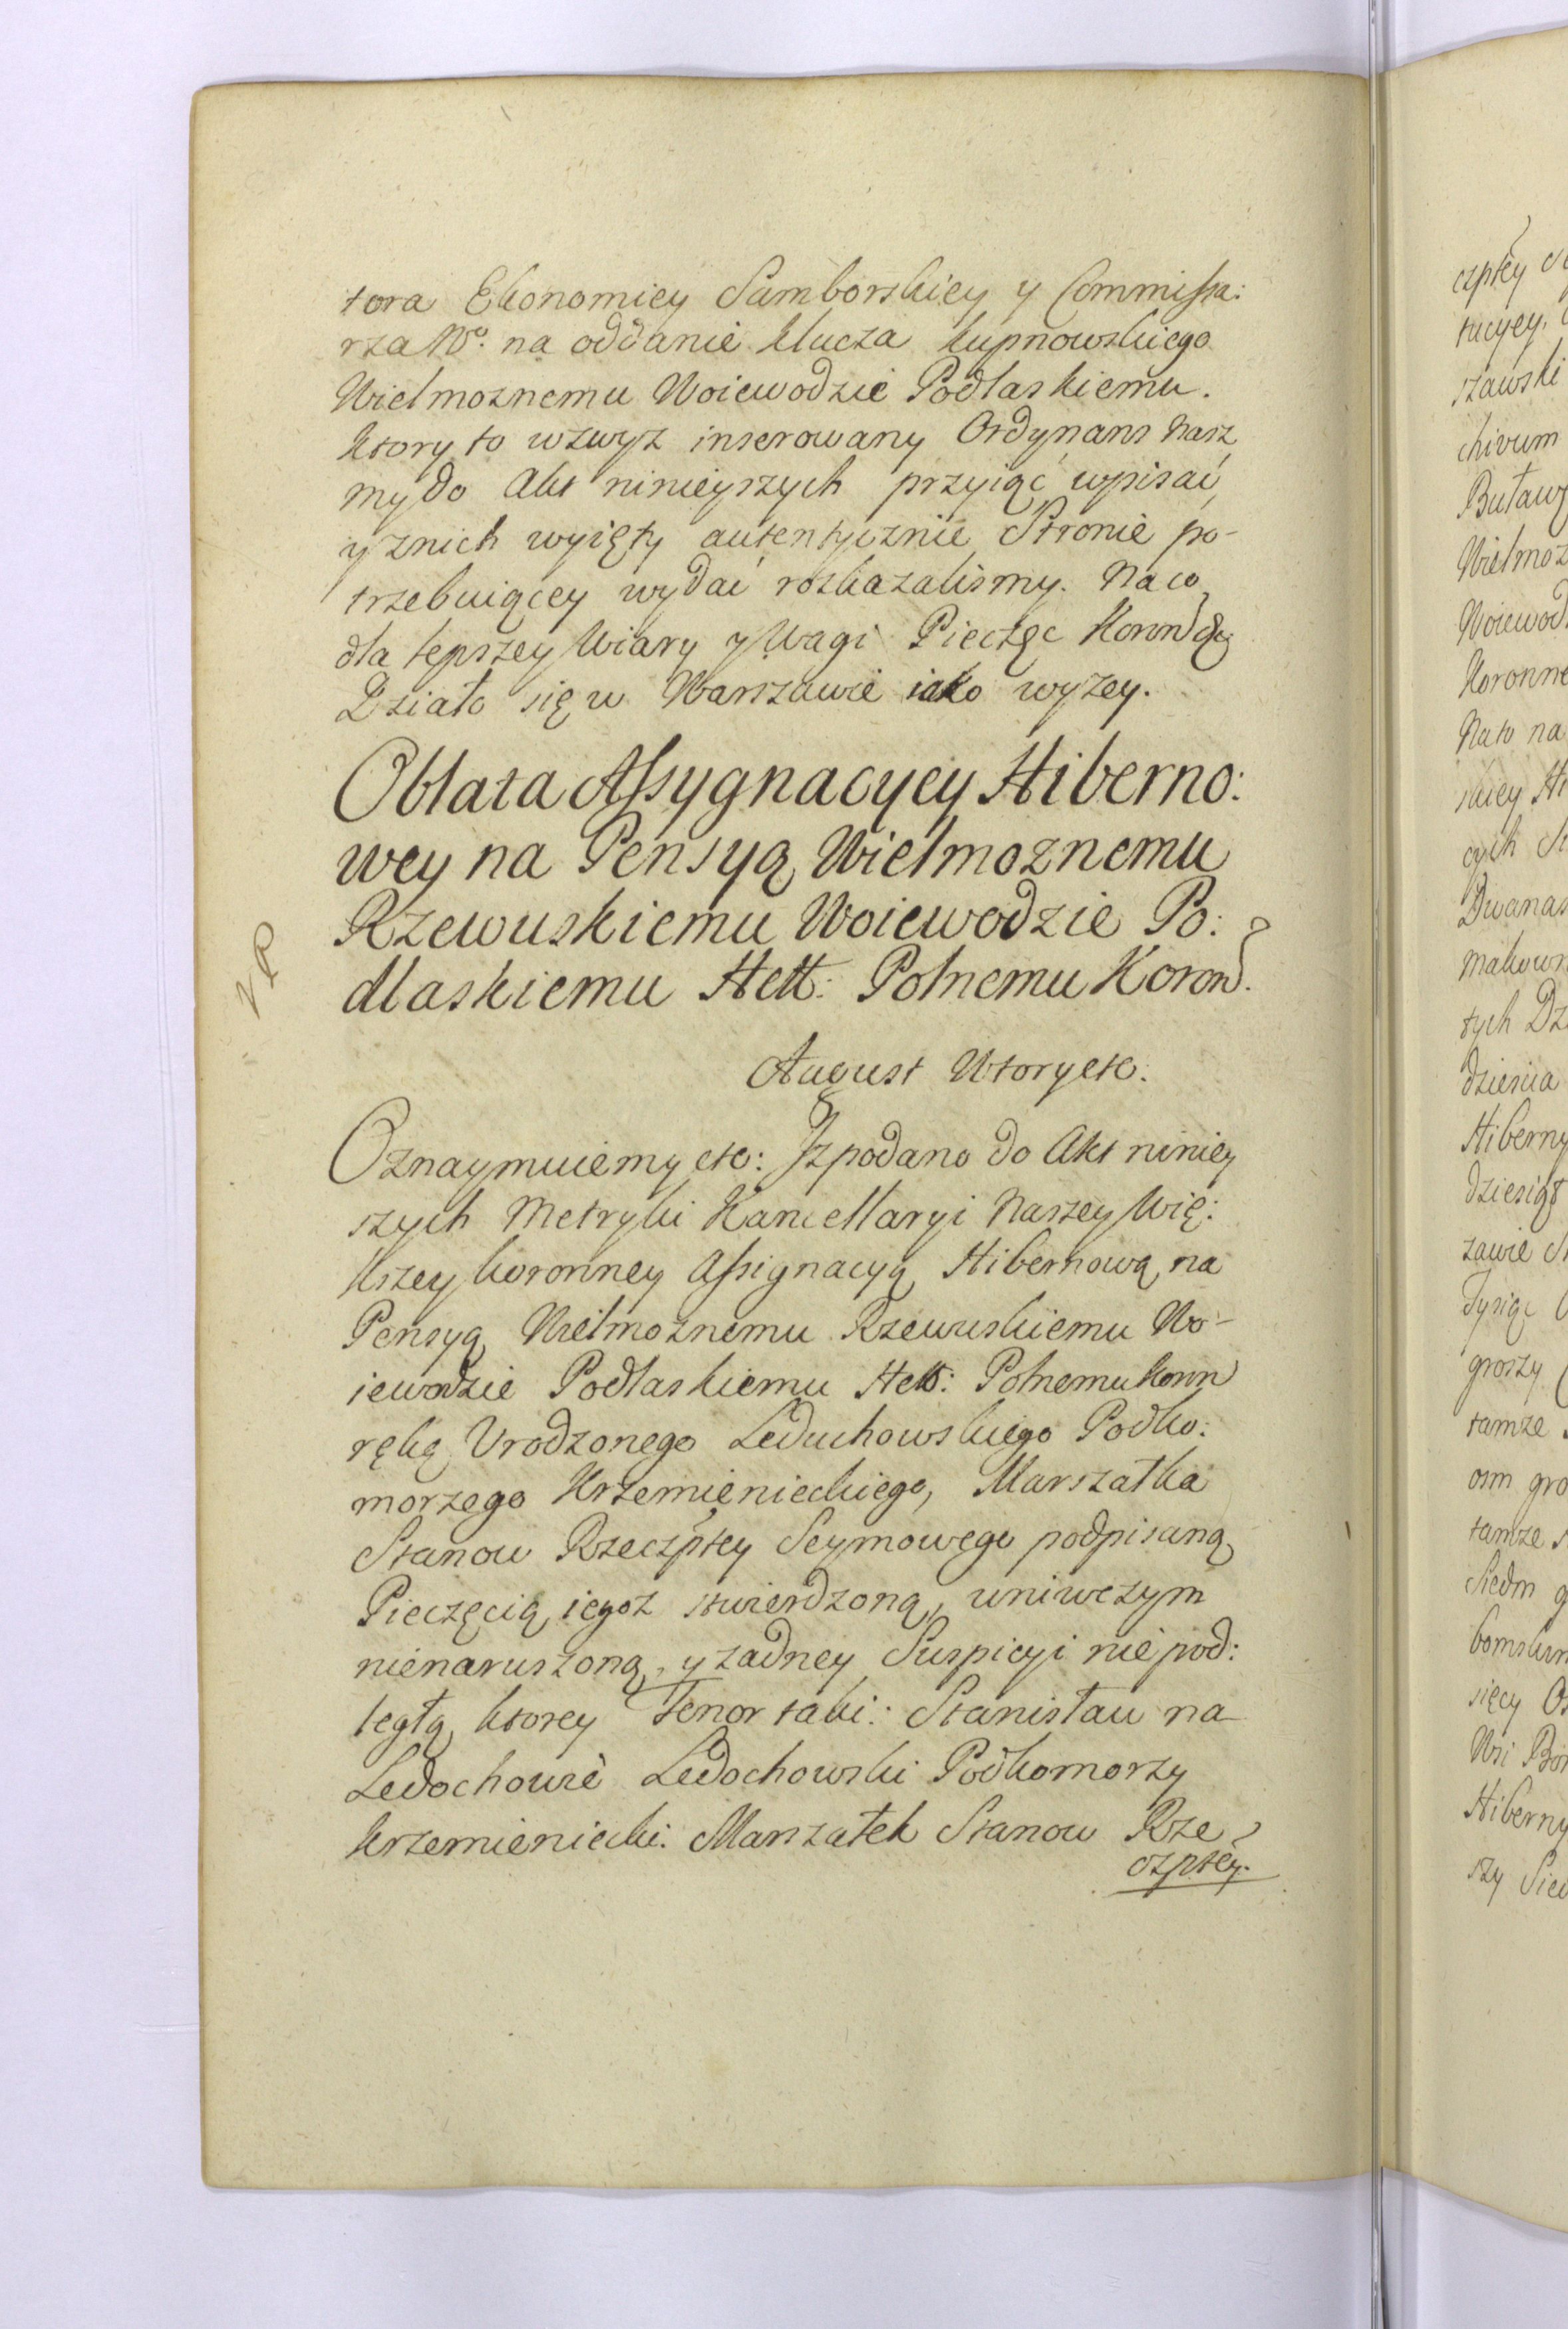 tora Ekonomiey Samborskiey y Commissa:
rza Nº. na oddanie klucza kupnowskiego
Wielmoznemu Woiewodzie Podlaskiemu.
ktory to wzwyz inserowany Ordynans Nasz
my do Akt ninieyszych przyiąć wpisać
y znich wyięty autentycznie Stronie po-
trzebuiącey wydać roskazalismy. Na co
dla lepszey Wiary y Wagi Pieczęc Koron &
Działo się w Warszawie iako wyzey.
Oblata Assygnacyey Hiberno:
wey na Pensyą Wielmoznemu
Rzewuskiemu Woiewodzie Po:
dlaskiemu Hett: Polnemu Koron.
August Wtory etc:
Oznaymuiemy etc: Iz podano do Akt niniey
szych Metryki Kancellaryi Naszey Wię:
kszey koronney Assignacyą Hibernową na
Pensyą Wielmoznemu Rzewuskiemu Wo-
iewodzie Podlaskiemu Hett: Polnemu Koron
ręką Urodzonego Leduchowskiego Podko:
morzego Krzemienieckiego, Marszałka
Stanow Rzeczptey Seymowego podpisaną
Pieczęcią iegoz stwierdzoną, uniwczym
nienaruszoną, y zadney Suspicyi nie pod:
ległą ktorey Tenor taki: Stanisław na
Ledochowie Ledochowski Podkomorzy
krzemieniecki. Marszałek Stanow Rze
czptey.
VP
czptey
tucyey,
szawski
chivum
Buławę
Wielmoz
Woiewod
Koronne
Na to na
skiey Hi
cych
Dwanas
makows
tych Dz
dziescia
Hiberny
dziesiąt
zawie
Tysiąc
groszy
tamze
osm gro
tamze
Siedm g
sięcy
Wsi Bor
Hiberny
szy Sied